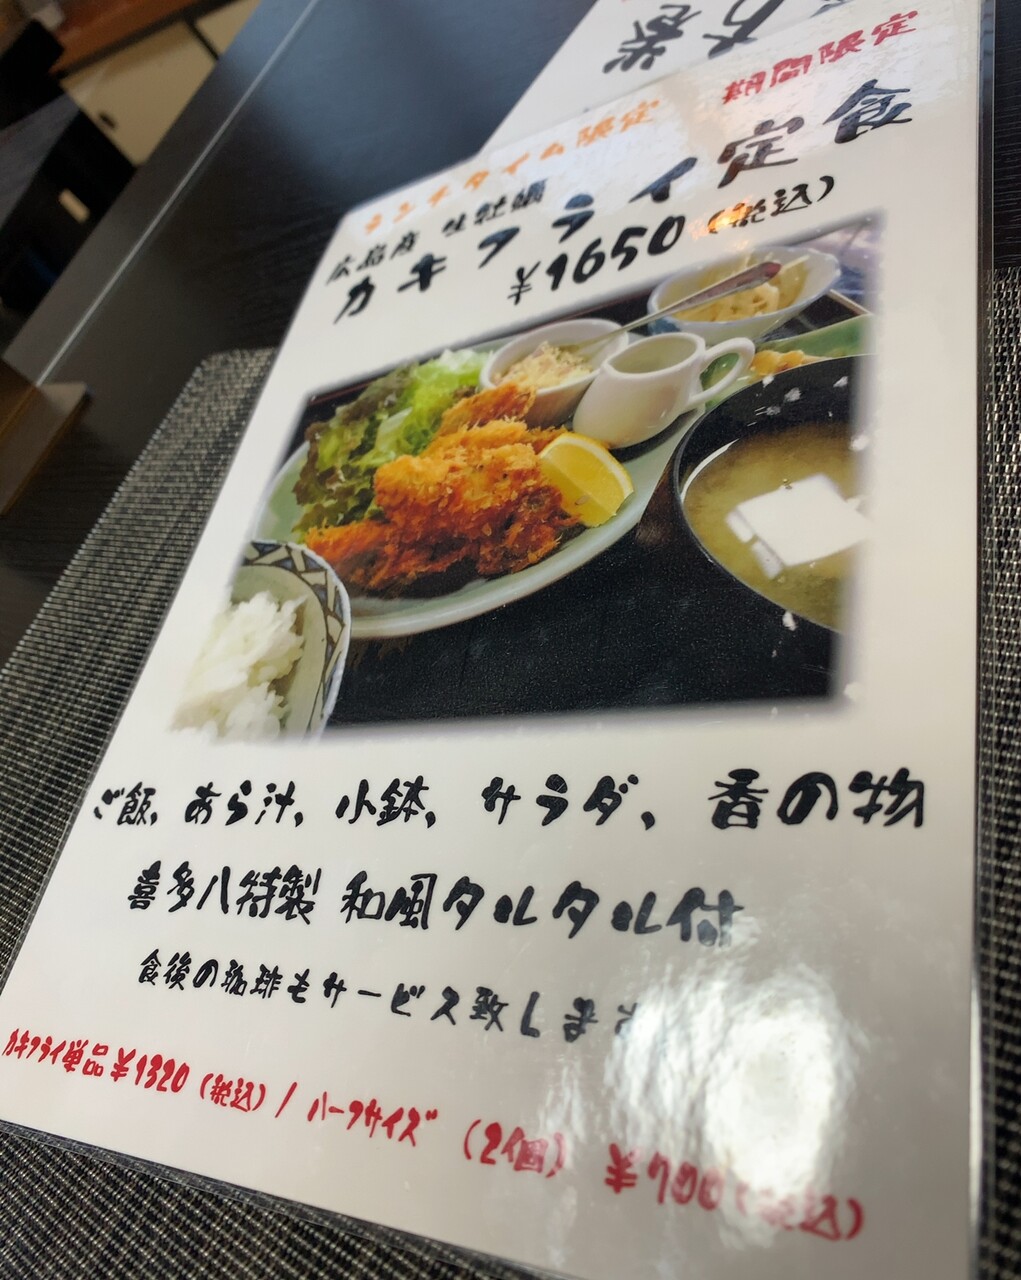 ランチタイム限定 期間限定
広島産 生牡蠣
カキフライ定食
¥1650(税込)
ご飯、あら汁、小鉢、サラダ、香の物
喜多八特製 和風タルタル付
食後の珈琲もサービス致します
カキフライ単品¥1320(税込)/ハーフサイズ(2個)¥700(税込)